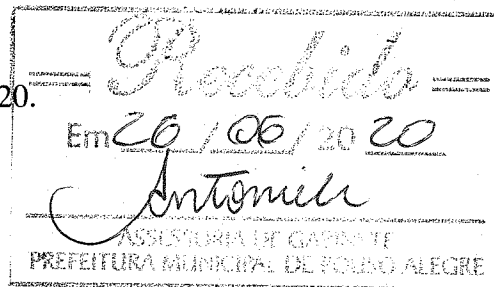 Recebido
20.
Em 26 / 06 / 20 20
ASSESSORIA DE GABINETE
PREFEITURA MUNICIPAL DE POUSO ALEGRE